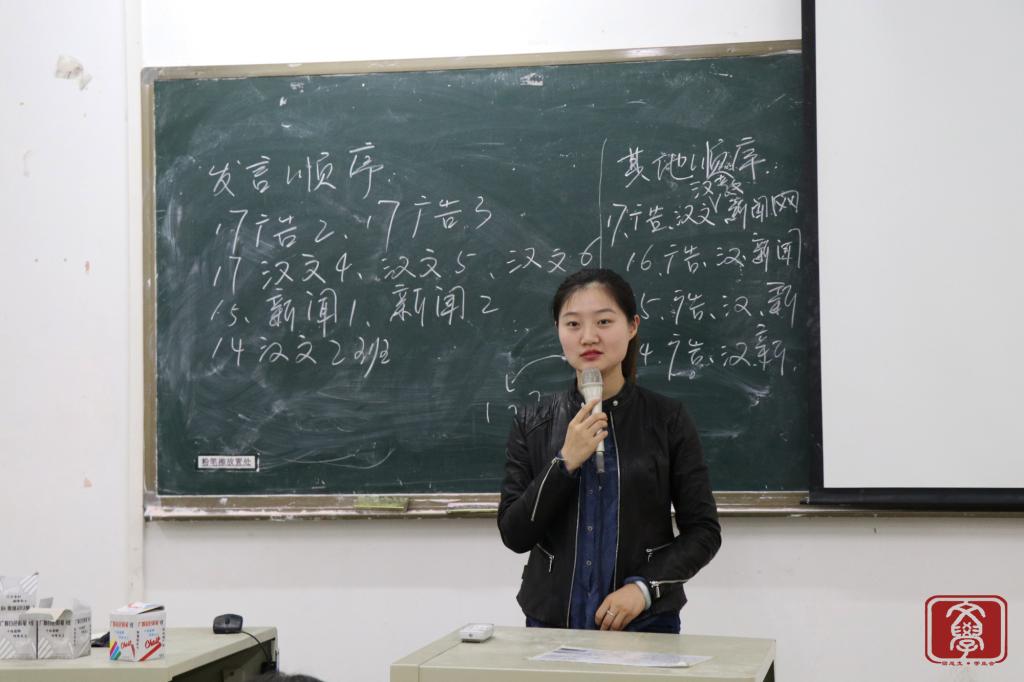 发言顺序
17广告2、17广告3
17 汉文4、汉文5、汉文6
15、新闻1、新闻2
14 汉文2班
其他顺序
汉教
17、广告、汉文、新闻网
16、广告、汉、新闻
5、广告、汉、新
4、广告、汉、新、
粉笔擦放置处
Chalk
文學
学生会